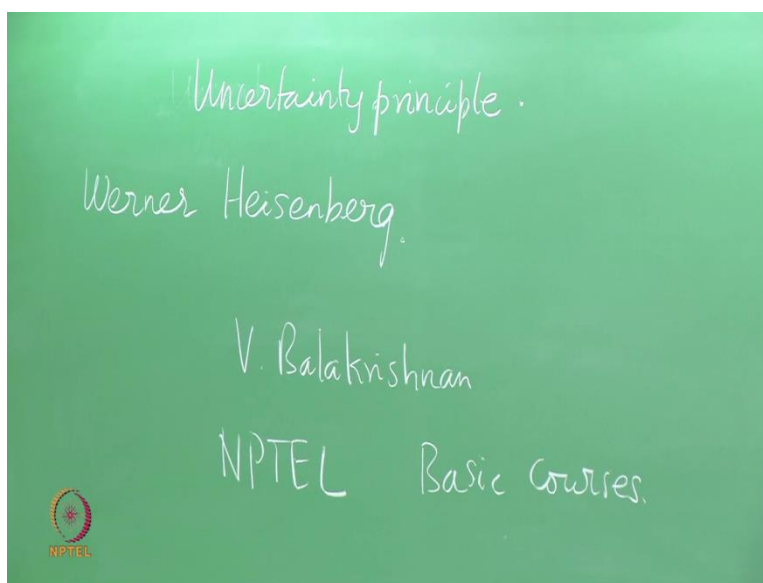 Uncertainty principle.
Werner Heisenberg.
V. Balakrishnan
NPTEL Basic Courses.
NPTEL